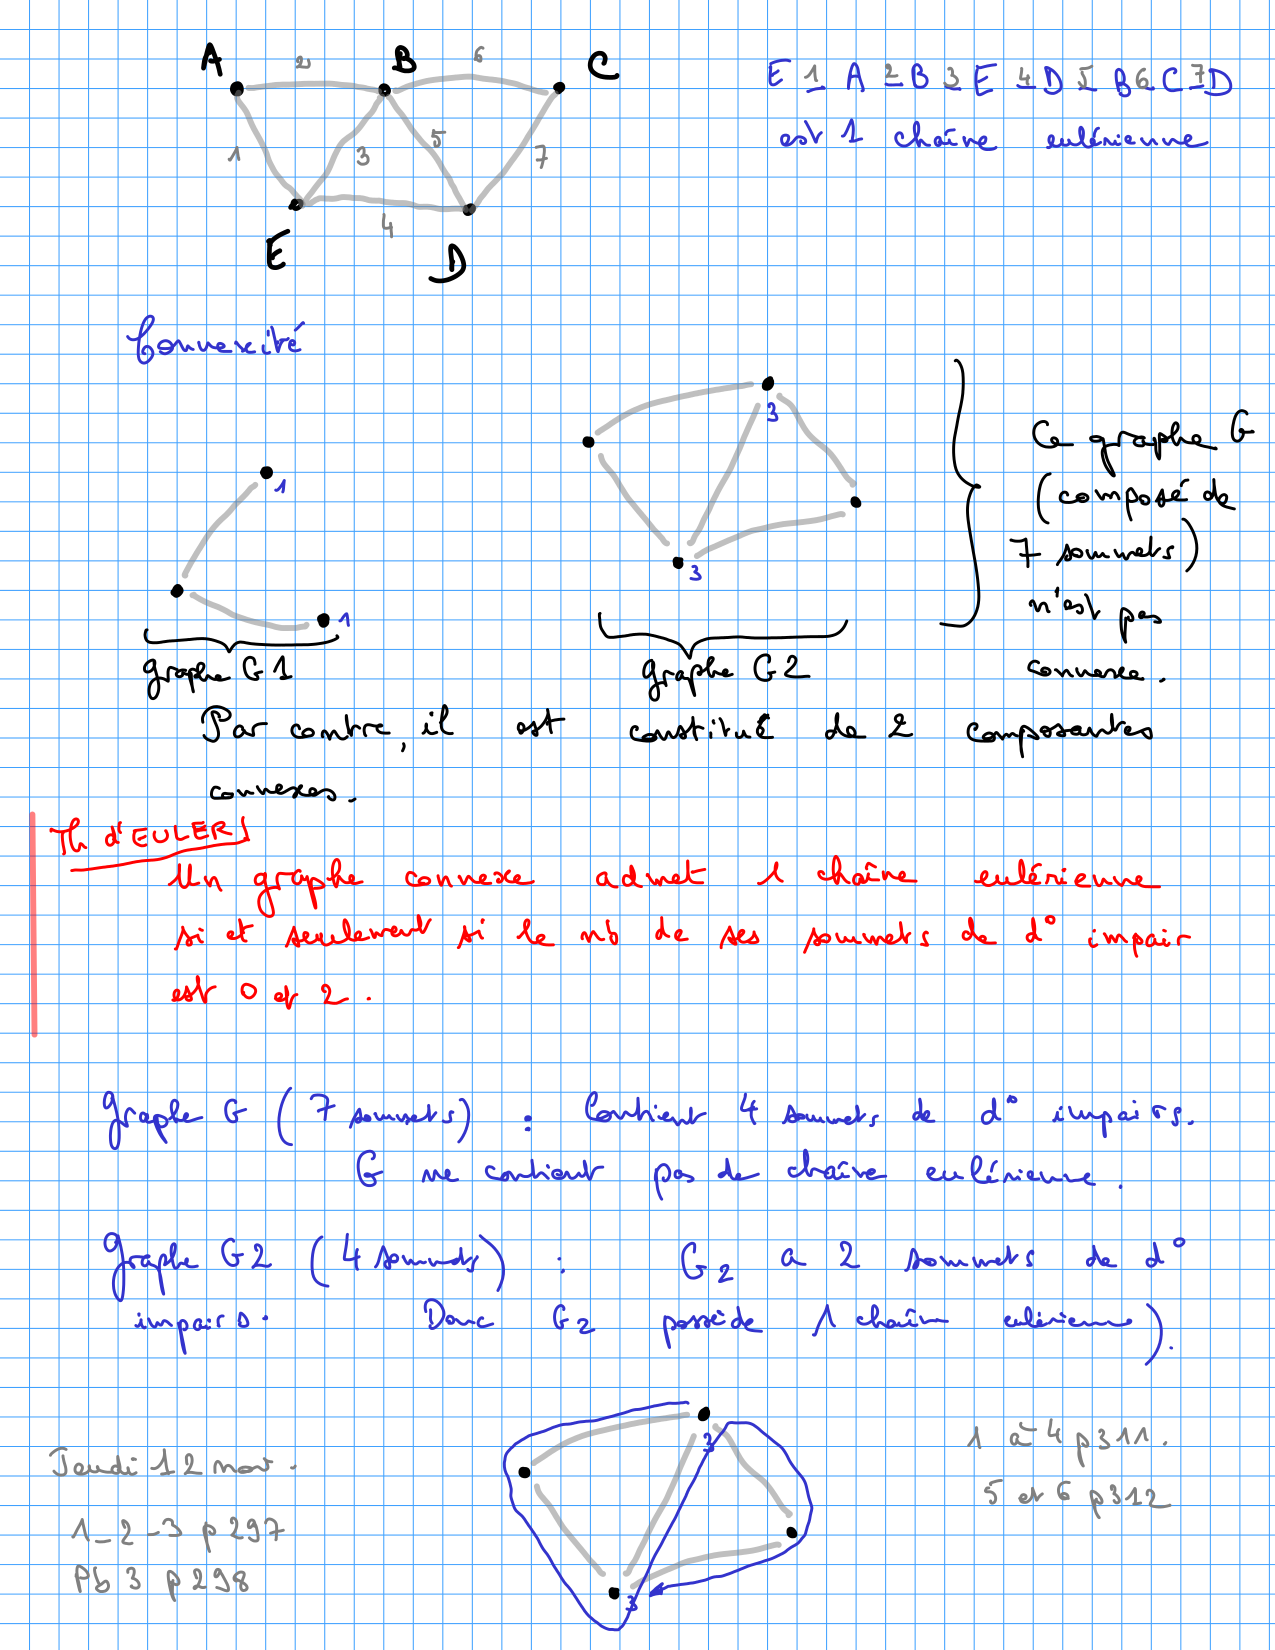 A 2 B 6 C
1 3 5 7
4
E D
E 1 A 2 B 3 E 4 D 5 B 6 C 7 D
est 1 chaîne eulérienne
Connexité
3
1
3
1
graphe G1
graphe G2
Ce graphe G
(composé de
7 sommets)
n'est pas
connexe.
Par contre, il est constitué de 2 composantes
connexes.
Th d'EULER
Un graphe connexe admet 1 chaîne eulérienne
si et seulement si le nb de ses sommets de d° impair
est 0 et 2.
graphe G (7 sommets) : Contient 4 sommets de d° impairs.
G ne contient pas de chaîne eulérienne.
graphe G2 (4 sommets) : G2 a 2 sommets de d°
impairs. Donc G2 possède 1 chaîne eulérienne).
3
3
Jeudi 12 nov.
1_2-3 p297
Pb 3 p298
1 à 4 p311.
5 et 6 p312